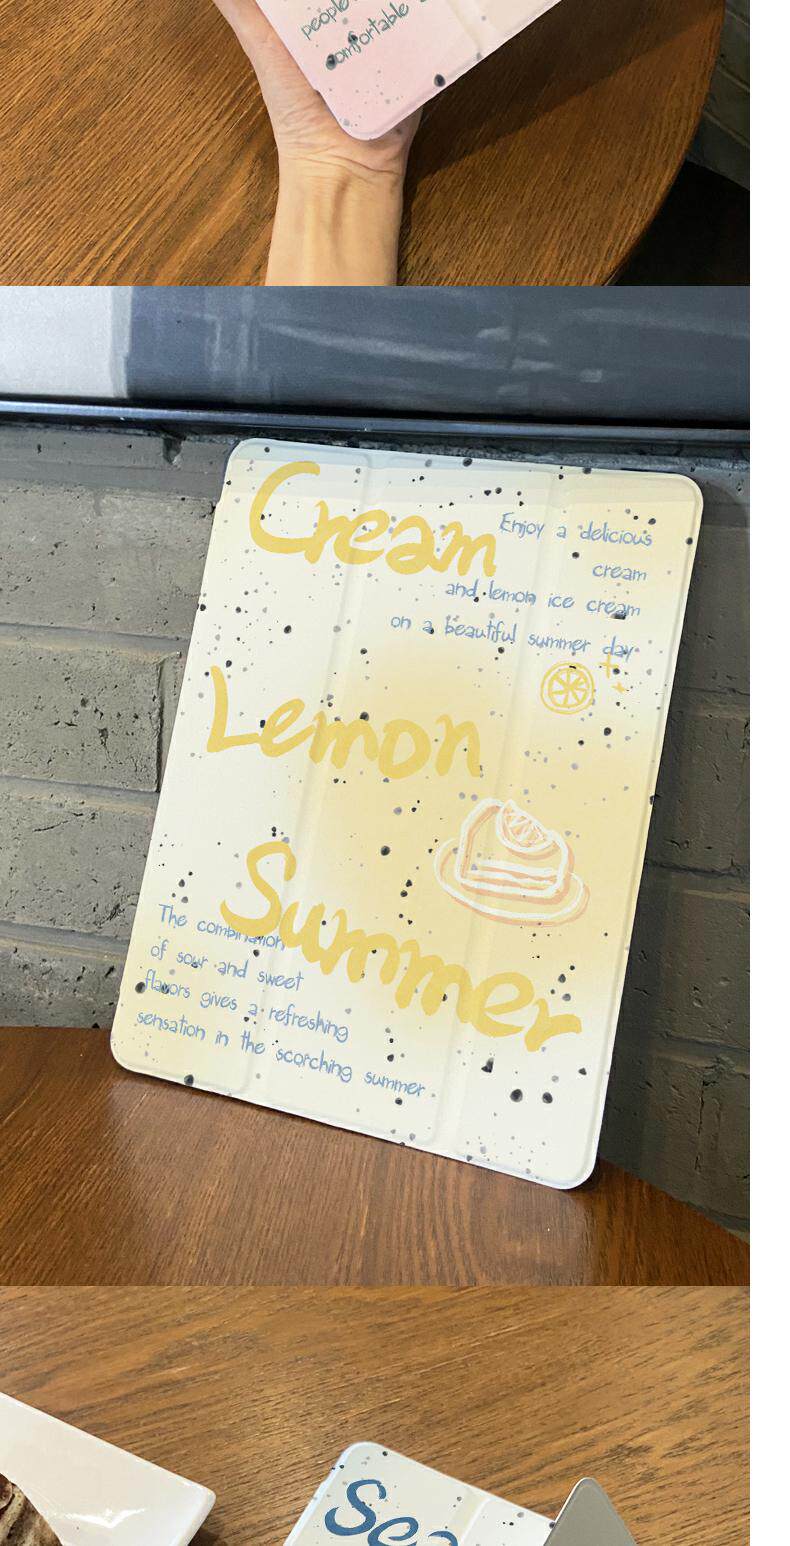 people
comfortable
Cream
Enjoy a delicious
cream
and lemon ice cream
on a beautiful summer day
Lemon
Summer
The combination
of sour and sweet
flavors gives a refreshing
sensation in the scorching summer